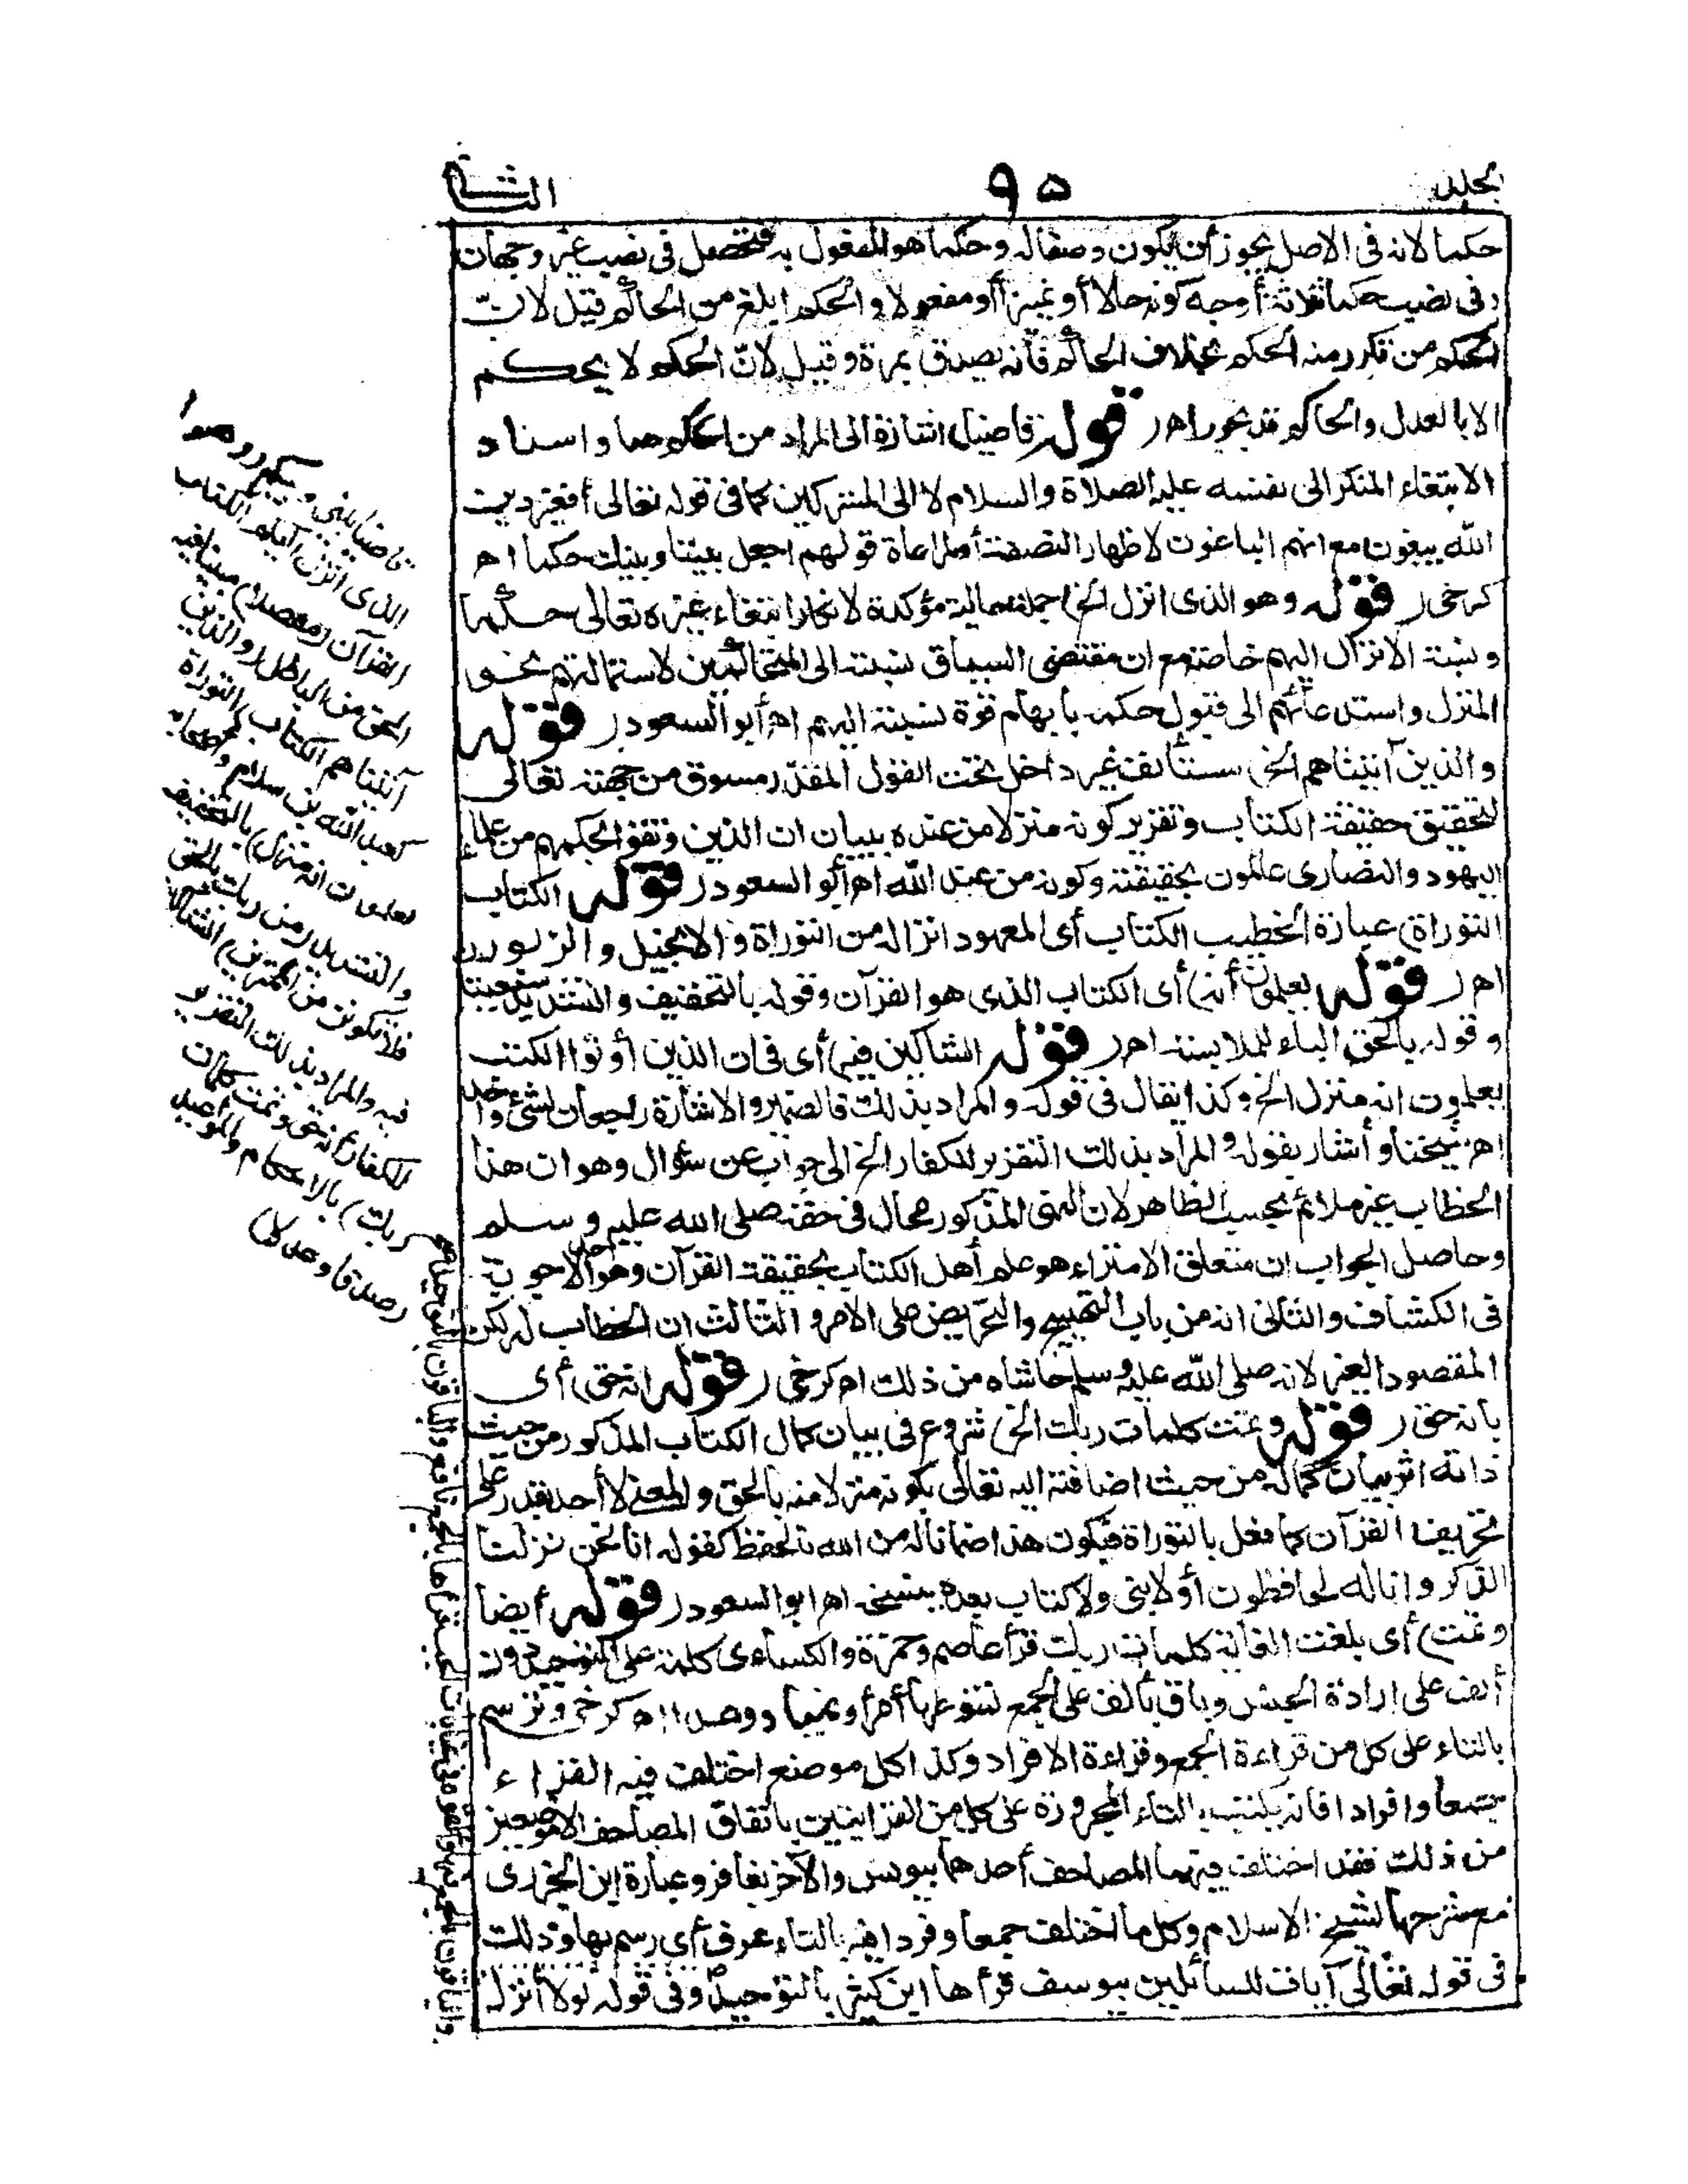 المجلد
٩٥
الثانى
حكما لانه فى الاصل يجوز أن يكون وصفاله وحكما هو المفعول به فتحصل فى نصب غير وجهان
وفى نصب حكما ثلاثة أوجه كونه حالا أو تميزا أو مفعولا والحكم ابلغ من الحاكم قيل لانّ
الحكم من تكرر منه الحكم بخلاف الحاكم فانه يصدق بمرة وقيل لانّ الحكم لا يحكم
الا بالعدل والحاكم قد يجور اهر قوله قاضيا) اشارة الى المراد من الحكم هنا واسناد
الابتغاء المنكر الى نفسه عليه الصلاة والسلام لا الى المشركين كما فى قوله تعالى أفغير دين
الله يبغون مع انهم الباغون لاظهار النصفة أو لمراعاة قولهم اجعل بيننا وبينك حكما اه
كرخى ر قوله وهو الذى انزل الخ) جملة حالية مؤكدة لانكار ابتغاء غيره تعالى حكما
ونسبة الانزال اليهم خاصة مع ان مقتضى السياق نسبته الى المتحاكمين لاستمالتهم نحو
المنزل واستدعائهم الى قبول حكمه بايهام قوة نسبته اليهم اهر أبو السعود ر قوله
والذين آتيناهم الخ) مستأنف غير داخل تحت القول المقدّر مسوق من جهته تعالى
لتحقيق حقيقة الكتاب وتقرير كونه منزلا من عنده ببيان ان الذين وثقوا بحكمهم من علماء
اليهود والنصارى عالمون بحقيقته وكونه من عند الله اهر أبو السعود ر قوله الكتاب
التوراة) عبارة الخطيب الكتاب أى المعهود انزاله من التوراة والانجيل والزبور
اهر قوله يعلمون أنه) أى الكتاب الذى هو القرآن وقوله بالتخفيف والتشديد سبعيتان
وقوله بالحق الباء للملابسة اهر قوله الشاكين فيه) أى فى ان الذين أوتوا الكتب
يعلمون انه منزل الخ وكذا يقال فى قوله والمراد بذلك فالضمير والاشارة راجعان لشئ واحد
اهر شيخنا وأشار بقوله والمراد بذلك التقرير للكفار الخ الى جواب عن سؤال وهو ان هذا
الخطاب غير ملائم بحسب الظاهر لان النهى المذكور محال فى حقه صلى الله عليه وسلم
وحاصل الجواب ان متعلق الامتراء هو علم أهل الكتاب بحقيقة القرآن وهو أحد الاجوبة
فى الكشاف والثانى انه من باب التهييج والتحريض على الامر والثالث ان الخطاب له لكن
المقصود الغير لانه صلى الله عليه وسلم حاشاه من ذلك اهر كرخى ر قوله انه حق) أى
بانه حق ر قوله وتمت كلمات ربك الخ) شروع فى بيان كمال الكتاب المذكور من حيث
ذاته اثر بيان كماله من حيث اضافته اليه تعالى بكونه منزلا منه بالحق والمعنى لا أحد يقدر على
تحريف القرآن كما فعل بالتوراة فيكون هذا ضمانا له من الله بالحفظ كقوله انا نحن نزلنا
الذكر وانا له لحافظون أو لا نبى ولا كتاب بعده ينسخه اهر ابو السعود ر قوله أيضا
وتمت) أى بلغت الغاية كلمات ربك قرأ عاصم وحمزة والكسائى كلمة على التوحيد دون
ألف على ارادة الجنس وباق بألف على الجمع لتنوعها أمرا ونهيا ووعدا اه كرخى وترسم
بالتاء على كل من قراءة الجمع وقراءة الافراد وكذا كل موضع اختلف فيه القراء
جمعا وافرادا فانه يكتب بالتاء المجرورة على كل من القراءتين باتفاق المصاحف الا موضعين
من ذلك فقد اختلف فيهما المصاحف أحدهما بيونس والآخر بغافر وعبارة ابن الجزرى
مع شرحها لشيخ الاسلام وكل ما اختلف جمعا وفردا فيه بالتاء عرف أى رسم بها وذلك
فى قوله تعالى آيات للسائلين بيوسف قرأها ابن كثير بالتوحيد وفى قوله لولا أنزل
قاضيا بينى وبينكم روهوا
الذى انزل اليكم الكتاب
القرآن رمفصلا) مبينا فيه
الحق من الباطل روالذين
آتيناهم الكتاب) التوراة
كعبد الله بن سلام واصحابه
يعلمون انه منزل) بالتخفيف
والتشديد رمن ربك بالحق
فلا تكونن من الممترين) الشاكين
فيه والمراد بذلك التقرير
للكفار أنه حق وتمت كلمات
ربك) بالاحكام والمواعيد
رصدقا وعدلا)